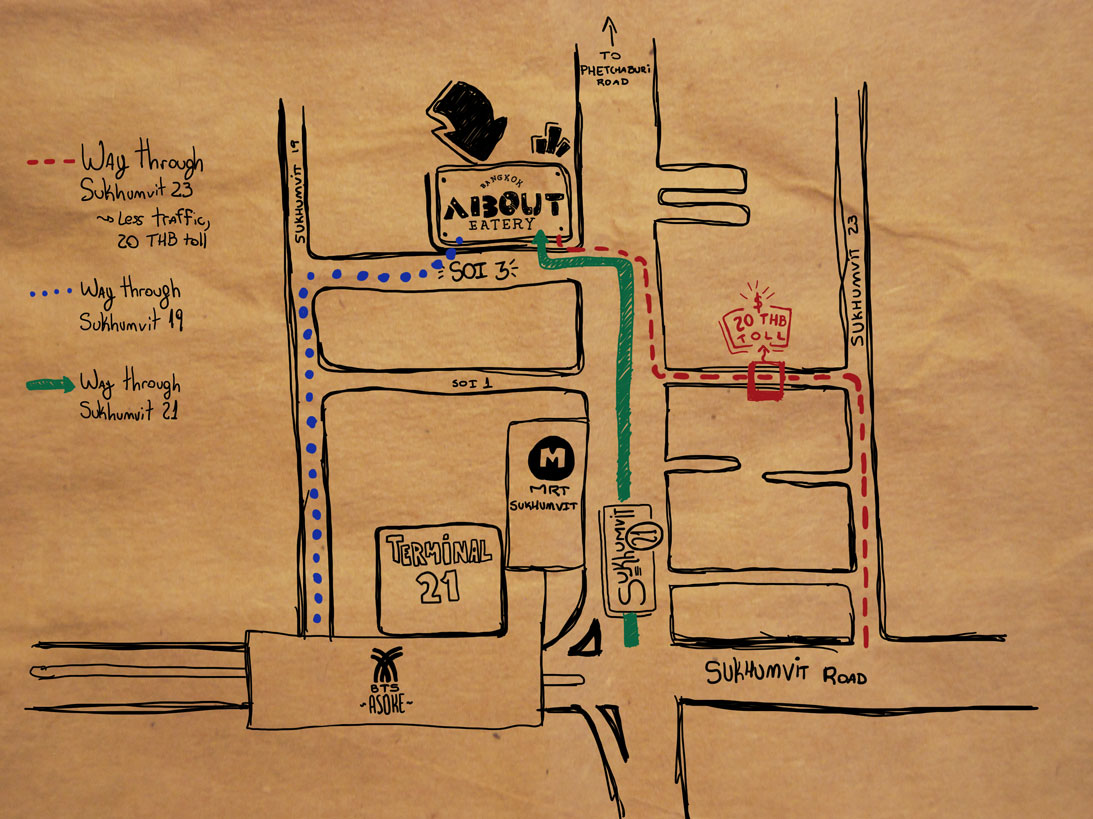 TO
PHETCHABURI
ROAD
Way through
Sukhumvit 23
~> Less traffic,
20 THB toll
Way through
Sukhumvit 19
Way through
Sukhumvit 21
SUKHUMVIT 19
BANGKOK
ABOUT
EATERY
SOI 3
SOI 1
SUKHUMVIT 23
$
20 THB
TOLL
M
MRT
SUKHUMVIT
TERMINAL
21
SUKHUMVIT
21
BTS
~ASOKE~
SUKHUMVIT ROAD